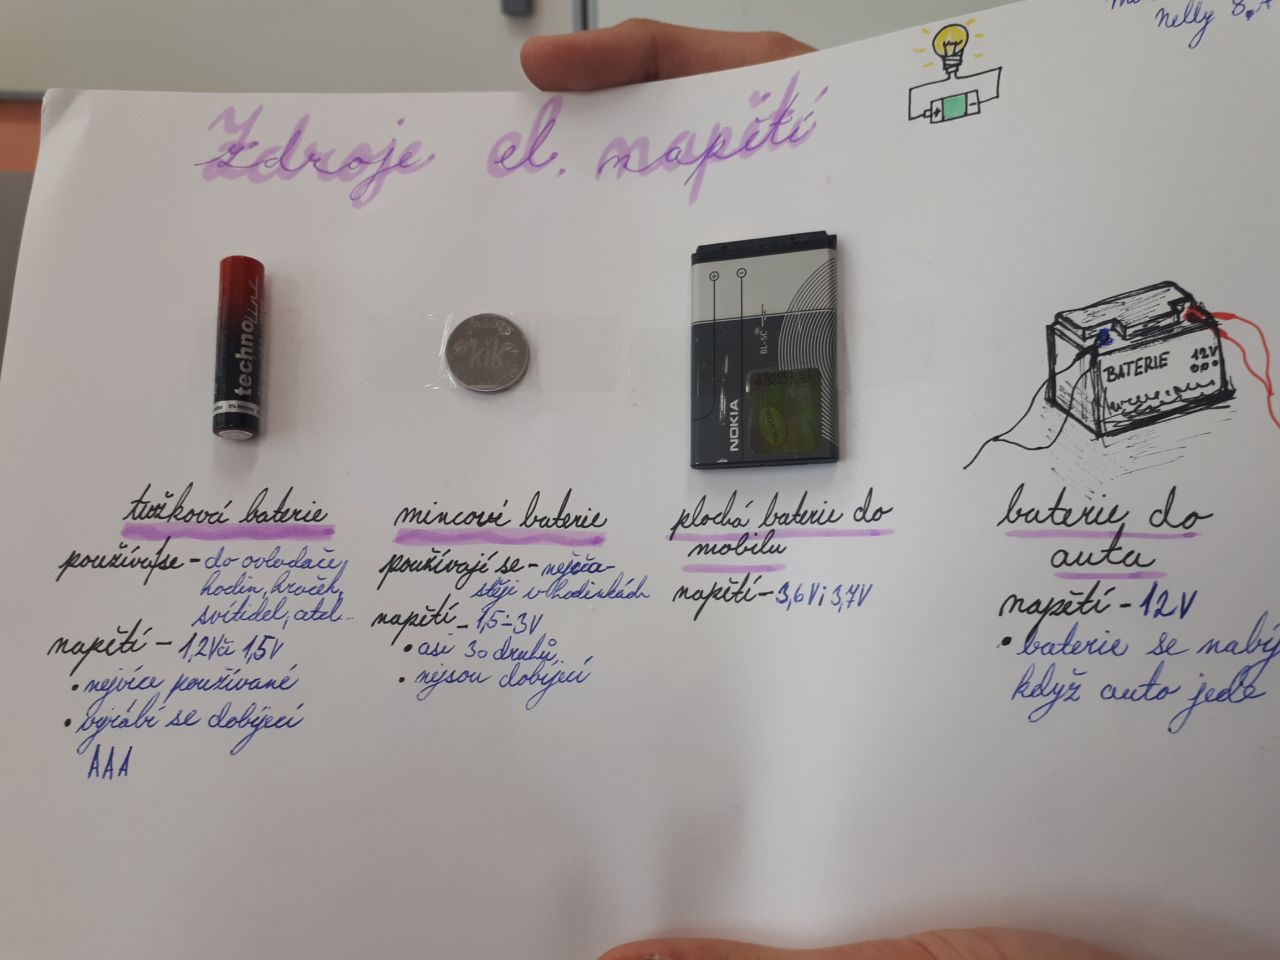 Nelly 8.A
Zdroje el. napětí
+ -
technoline
kik
+ -
BL-5C
NOKIA
BATERIE 12V
tužková baterie
používá se - do ovladače,
hodin, hraček,
svítidel, atd...
napětí - 1,2V či 1,5V
• nejvíce používané
• vyrábí se dobíjecí
AAA
mincové baterie
používají se - nejča-
stěji v hodinkách
napětí - 1,5-3V
• asi 30 druhů
• nejsou dobíjecí
plochá baterie do
mobilu
napětí - 3,6V i 3,7V
baterie do
auta
napětí - 12V
• baterie se nabý
když auto jede